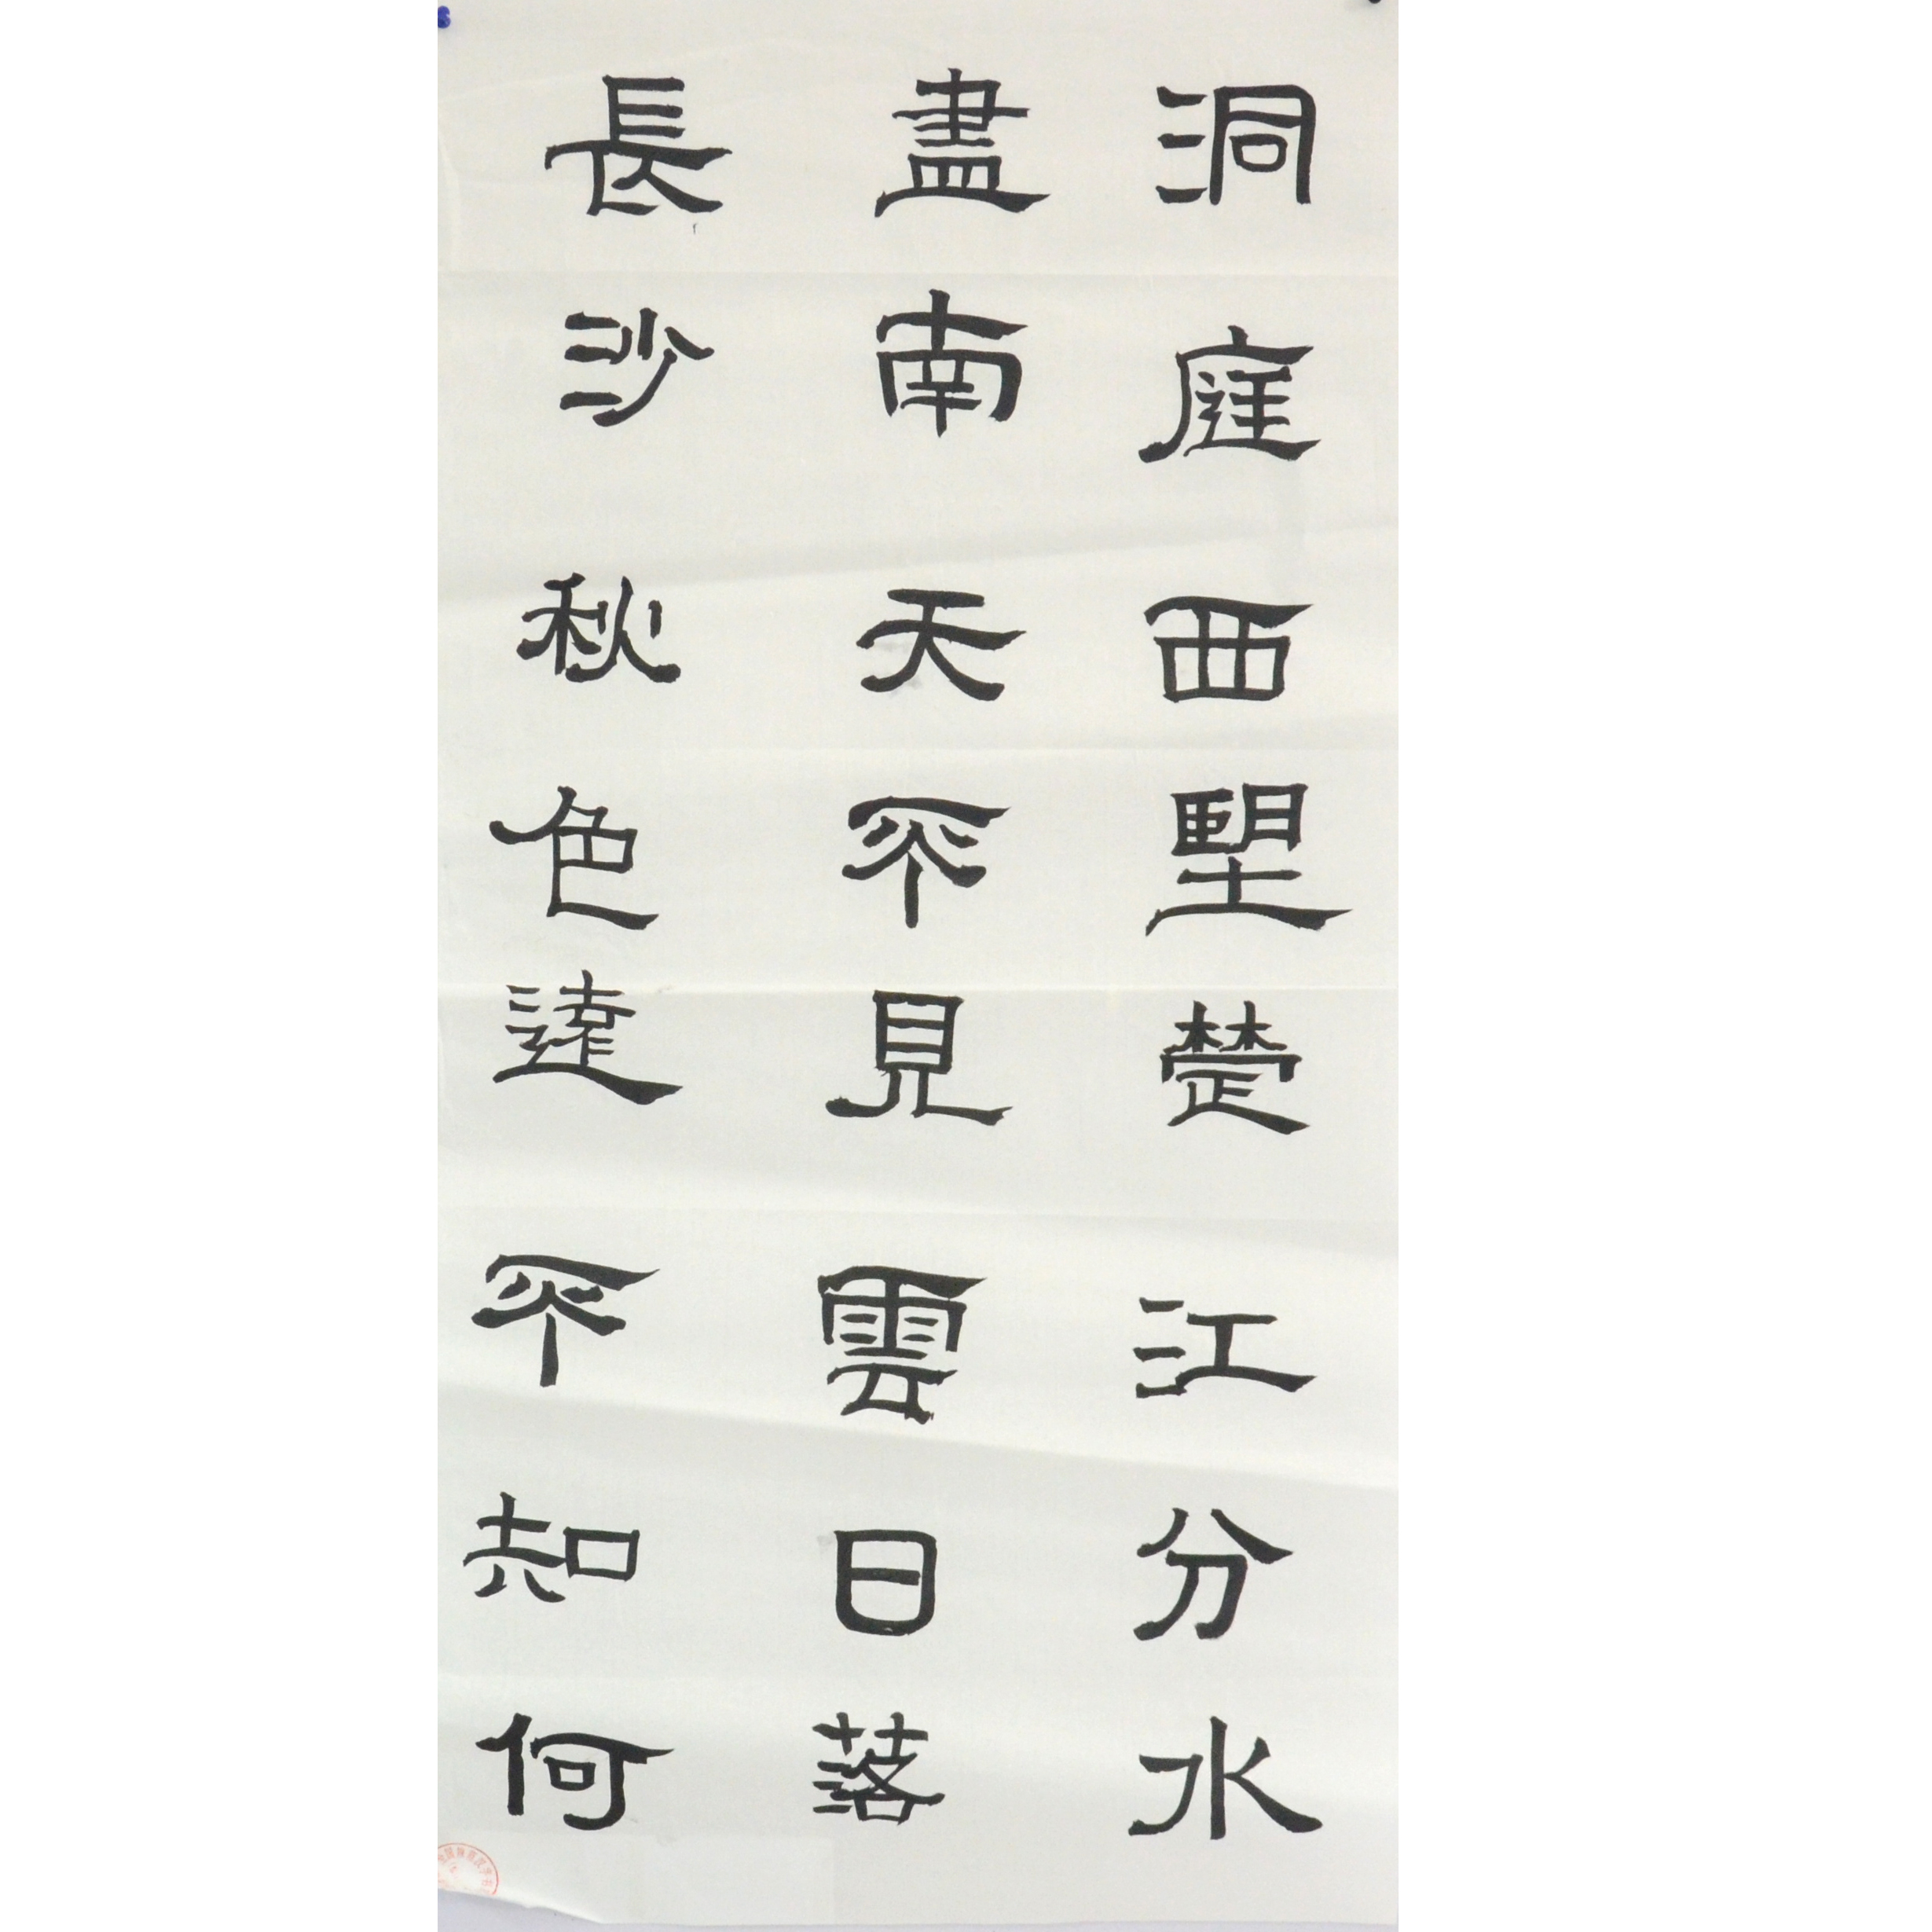 洞庭西望楚江分水
盡南天不見雲日落
長沙秋色遠不知何